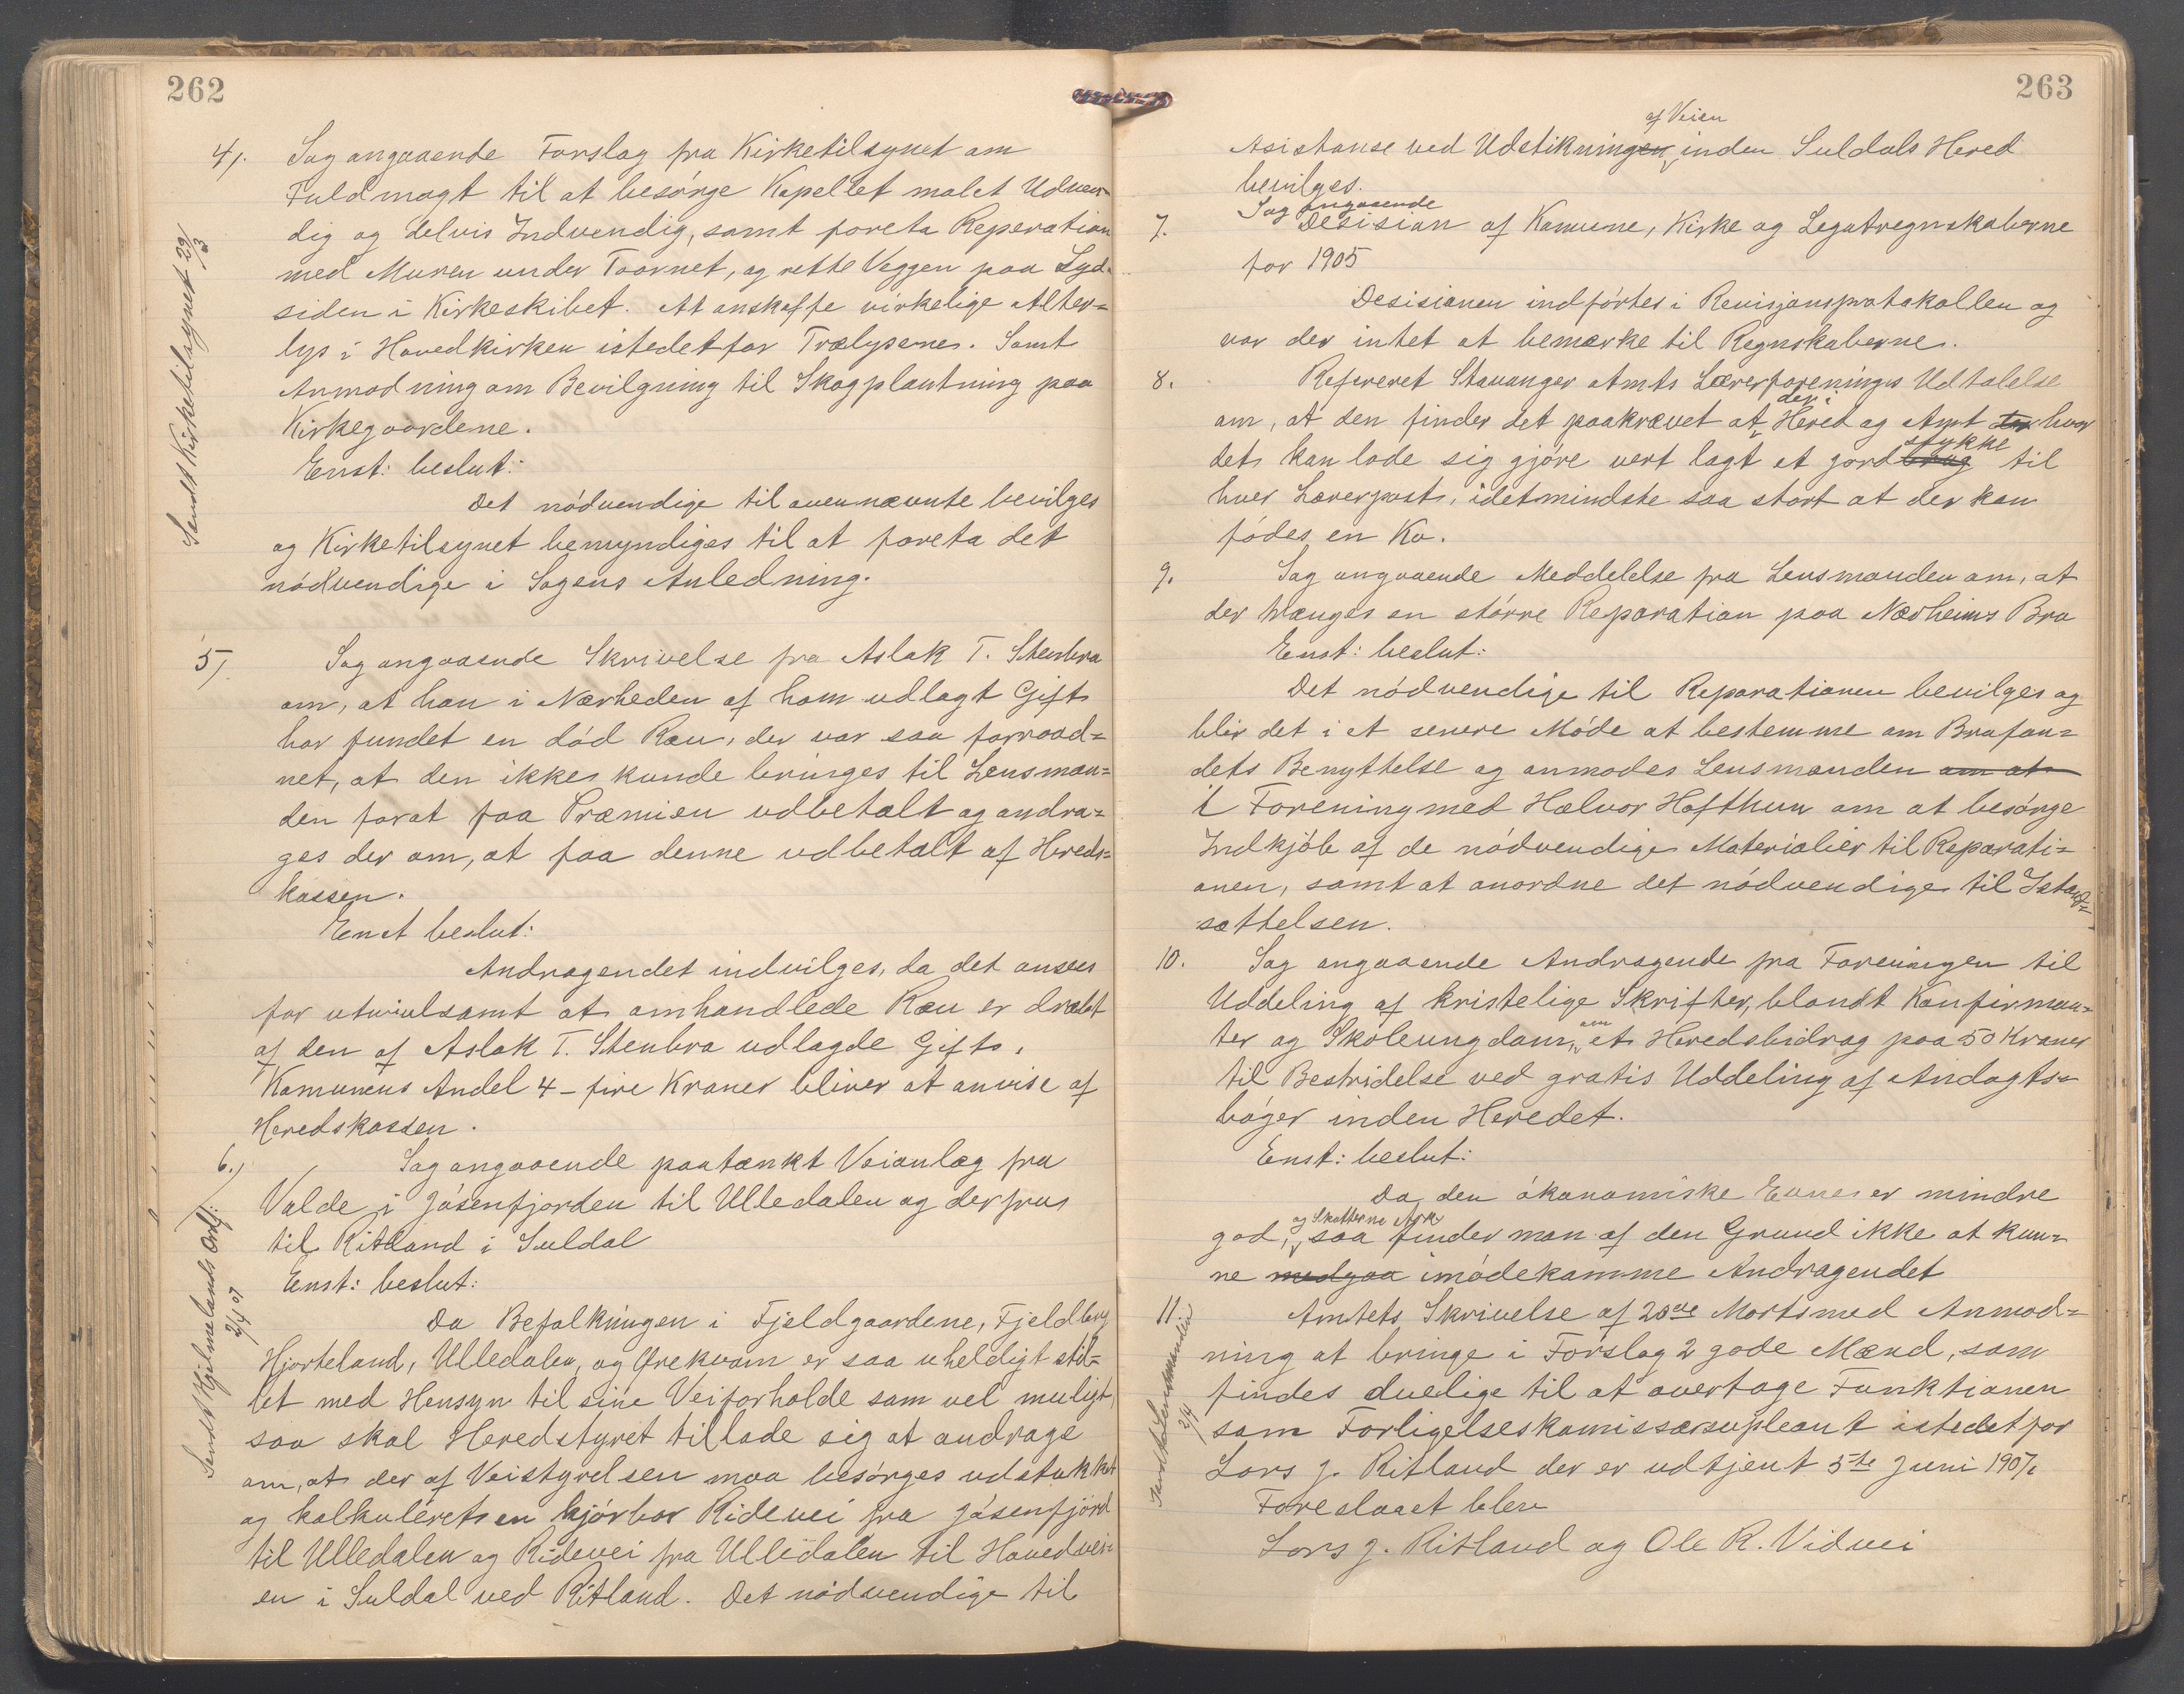 262
4). Sag angaaende Forslag fra Kirketilsynet om
Fuldmagt til at besórge Kapellet malet Udven-
dig og delvis Indvendig, samt foreta Reperation
med Muren under Taarnet, og rette Veggen paa Syd-
siden i Kirkeskibet. At anskaffe virkelige Alter-
lys i Hovedkirken istedetfor Trælysene. Samt
Anmodning om Bevilgning til Skogplantning paa
Kirkegaardene.
Enst: beslut:
Det nódvendige til avennævnte bevilges
og Kirketilsynet bemyndiges til at foreta det
nódvendige i Sagens Anledning.
Sendt Kirketilsynet 29/3
5). Sag angaaende Skrivelse fra Aslak T. Stenbra
om, at han i Nærheden af ham udlagt Gift
har fundet en dód Ræv, der var saa forraad-
net, at den ikke kunde bringes til Lensman-
den forat faa Præmien udbetalt og andra-
ges der om, at faa denne udbetalt af Hereds-
kassen.
Enst beslut:
Andragendet indvilges, da det ansees
for utvivlsamt at omhandlede Ræv er dræbt
af den af Aslak T. Stenbra udlagde Gift.
Kamunens Andel 4 - fire Kroner bliver at anvise af
Heredskassen.
6.) Sag angaaende paatænkt Veianlæg fra
Valde i Jósenfjorden til Ulledalen og derfra
til Ritland i Suldal
Enst: beslut:
Da Befalkningen i Fjeldgaardene, Fjeldberg
Hjorteland, Ulledalen, og Ørekvam er saa uheldigt stil-
let med Hensyn til sine Veiforholde som vel muligt,
saa skal Heredstyret tillade sig at andrage
om, at der af Veistyrelsen maa besórges udstukket
og kalkuleret en kjórbar Ridevei fra Jósenfjord
til Ulledalen og Ridevei fra Ulledalen til Hovedvei-
en i Suldal ved Ritland. Det nódvendige til
Sendt Hjelmelands Ordf: 2/4 07
263
af Veien
Asistanse ved Udstikningen inden Suldals Hered
bevilges.
Sag angaaende
7. Desisian af Kamune, Kirke og Legatregnskaberne
for 1905
Desisianen indfórtes i Revisjonsprotakollen og
var der intet at bemærke til Regnskaberne.
8. Refereret Stavanger Amts Lærerforenings Udtalelse
der i
om, at den finder det paakrævet at Hered og Amt der hvor
stykke
det kan lade sig gjóre vert lagt et jordbrug til
hver Lærerpost, idetmindste saa stort at der kan
fódes en Ko.
9. Sag angaaende Meddelelse fra Lensmanden om, at
der trænges en stórre Reparation paa Næsheims Bro
Enst: beslut:
Det nódvendige til Reparationen bevilges og
blir det i et senere Móde at bestemme om Brofon-
dets Benyttelse og anmodes Lensmanden om at
i Forening med Halvor Hofthun om at besórge
Indkjób af de nódvendige Materialier til Reparati-
onen, samt at anordne det nódvendige til Istand-
sættelsen.
10. Sag angaaende Andragende fra Foreningen til
Uddeling af kristelige Skrifter, blandt Konfirman-
om
ter og Skoleungdom, et Heredsbidrag paa 50 Kroner
til Bestridelse ved gratis Uddeling af Andagts-
bóger inden Heredet.
Enst: beslut:
Da den ókonomiske Evne er mindre
og Skatterne
god, saa finder man af den Grund ikke at kun-
ne medgaa imódekomme Andragendet
11. Amtets Skrivelse af 20de Marts med Anmod-
ning at bringe i Forslag 2 gode Mænd, som
findes duelige til at overtage Funktionen
som Forligelseskomissærsupleant istedetfor
Lars J. Ritland der er udtjent 5te Juni 1907.
Foreslaaet blev
Lars J. Ritland og Ole R. Vidvei
Sendt Lensmanden 2/4